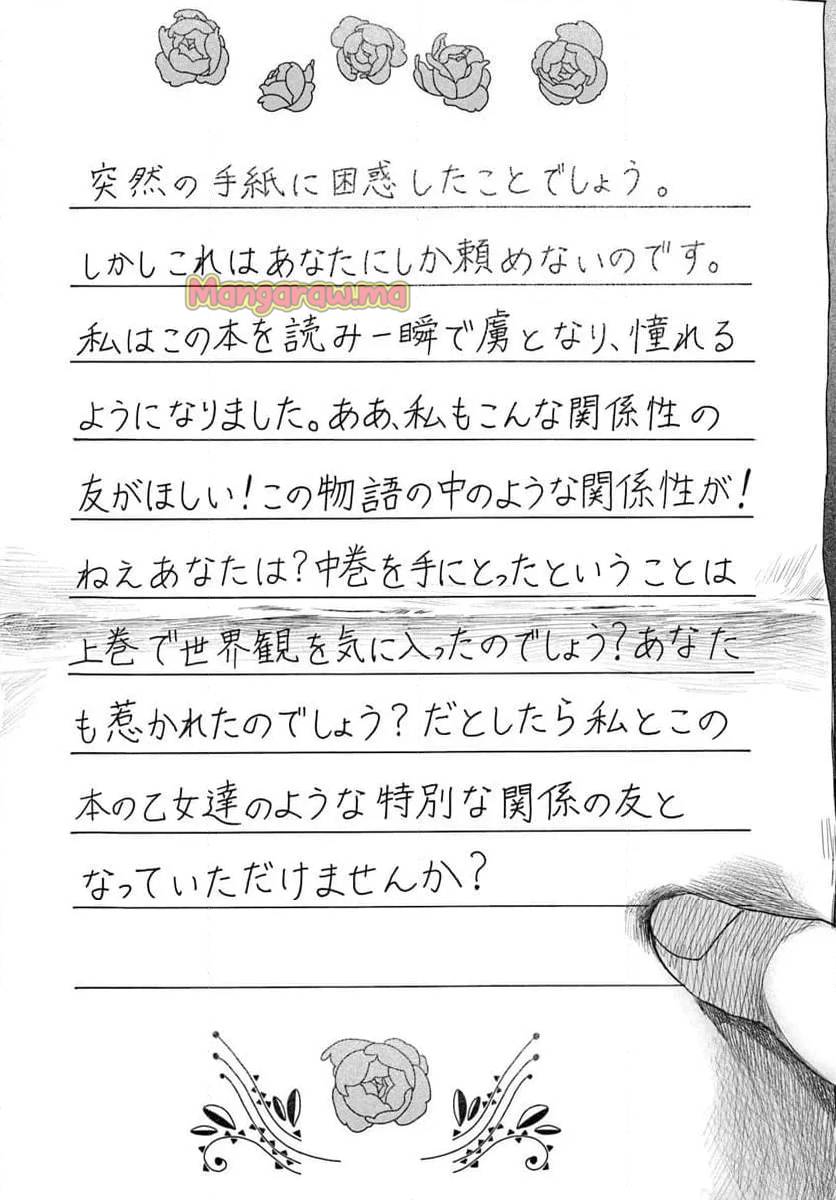 突然の手紙に困惑したことでしょう。
しかしこれはあなたにしか頼めないのです。
Mangaraw.ma
私はこの本を読み一瞬で虜となり、憧れる
ようになりました。ああ、私もこんな関係性の
友がほしい!この物語の中のような関係性が!
ねえあなたは?中巻を手にとったということは
上巻で世界観を気に入ったのでしょう?あなた
も惹かれたのでしょう?だとしたら私とこの
本の乙女達のような特別な関係の友と
なっていただけませんか?